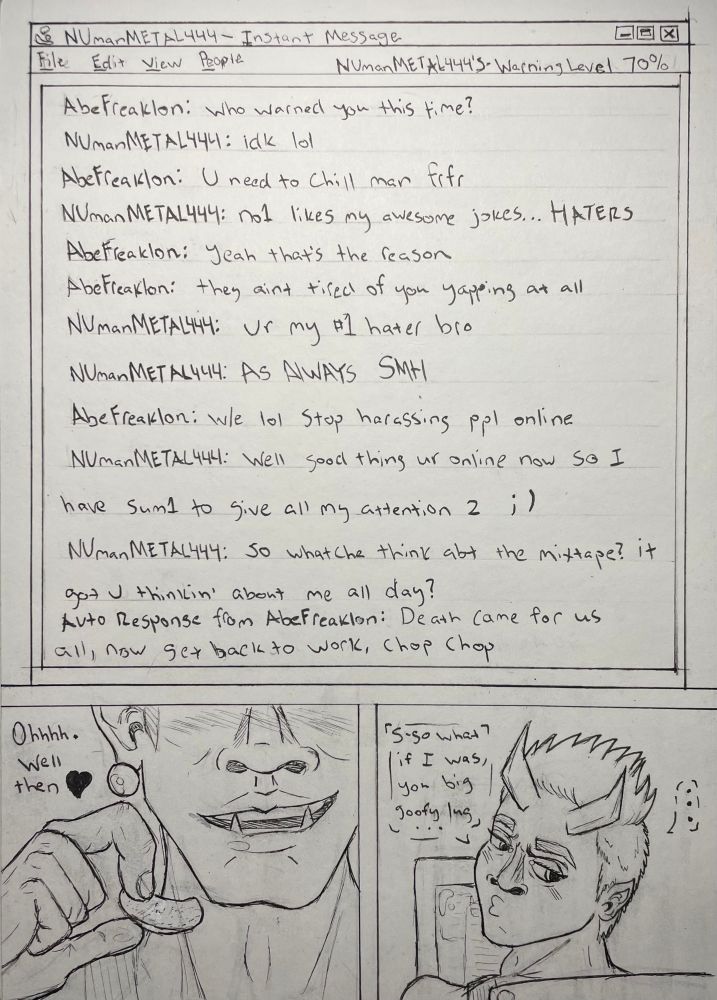 NUmanMETAL444 - Instant Message
File Edit View People NUmanMETAL444's - Warning Level 70%
AbeFreakIon: who warned you this time?
NUmanMETAL444: idk lol
AbeFreakIon: U need to chill man frfr
NUmanMETAL444: no1 likes my awesome jokes... HATERS
AbeFreakIon: yeah that's the reason
AbeFreakIon: they aint tired of you yapping at all
NUmanMETAL444: ur my #1 hater bro
NUmanMETAL444: AS ALWAYS SMH
AbeFreakIon: w/e lol Stop harassing ppl online
NUmanMETAL444: Well good thing ur online now so I
have sum1 to give all my attention 2 ;)
NUmanMETAL444: So whatche think abt the mixtape? it
got U thinkin' about me all day?
Auto Response from AbeFreakIon: Death came for us
all, now get back to work, chop chop
Ohhhh.
Well
then ♥
S-so what
if I was,
you big
goofy lug
...
...